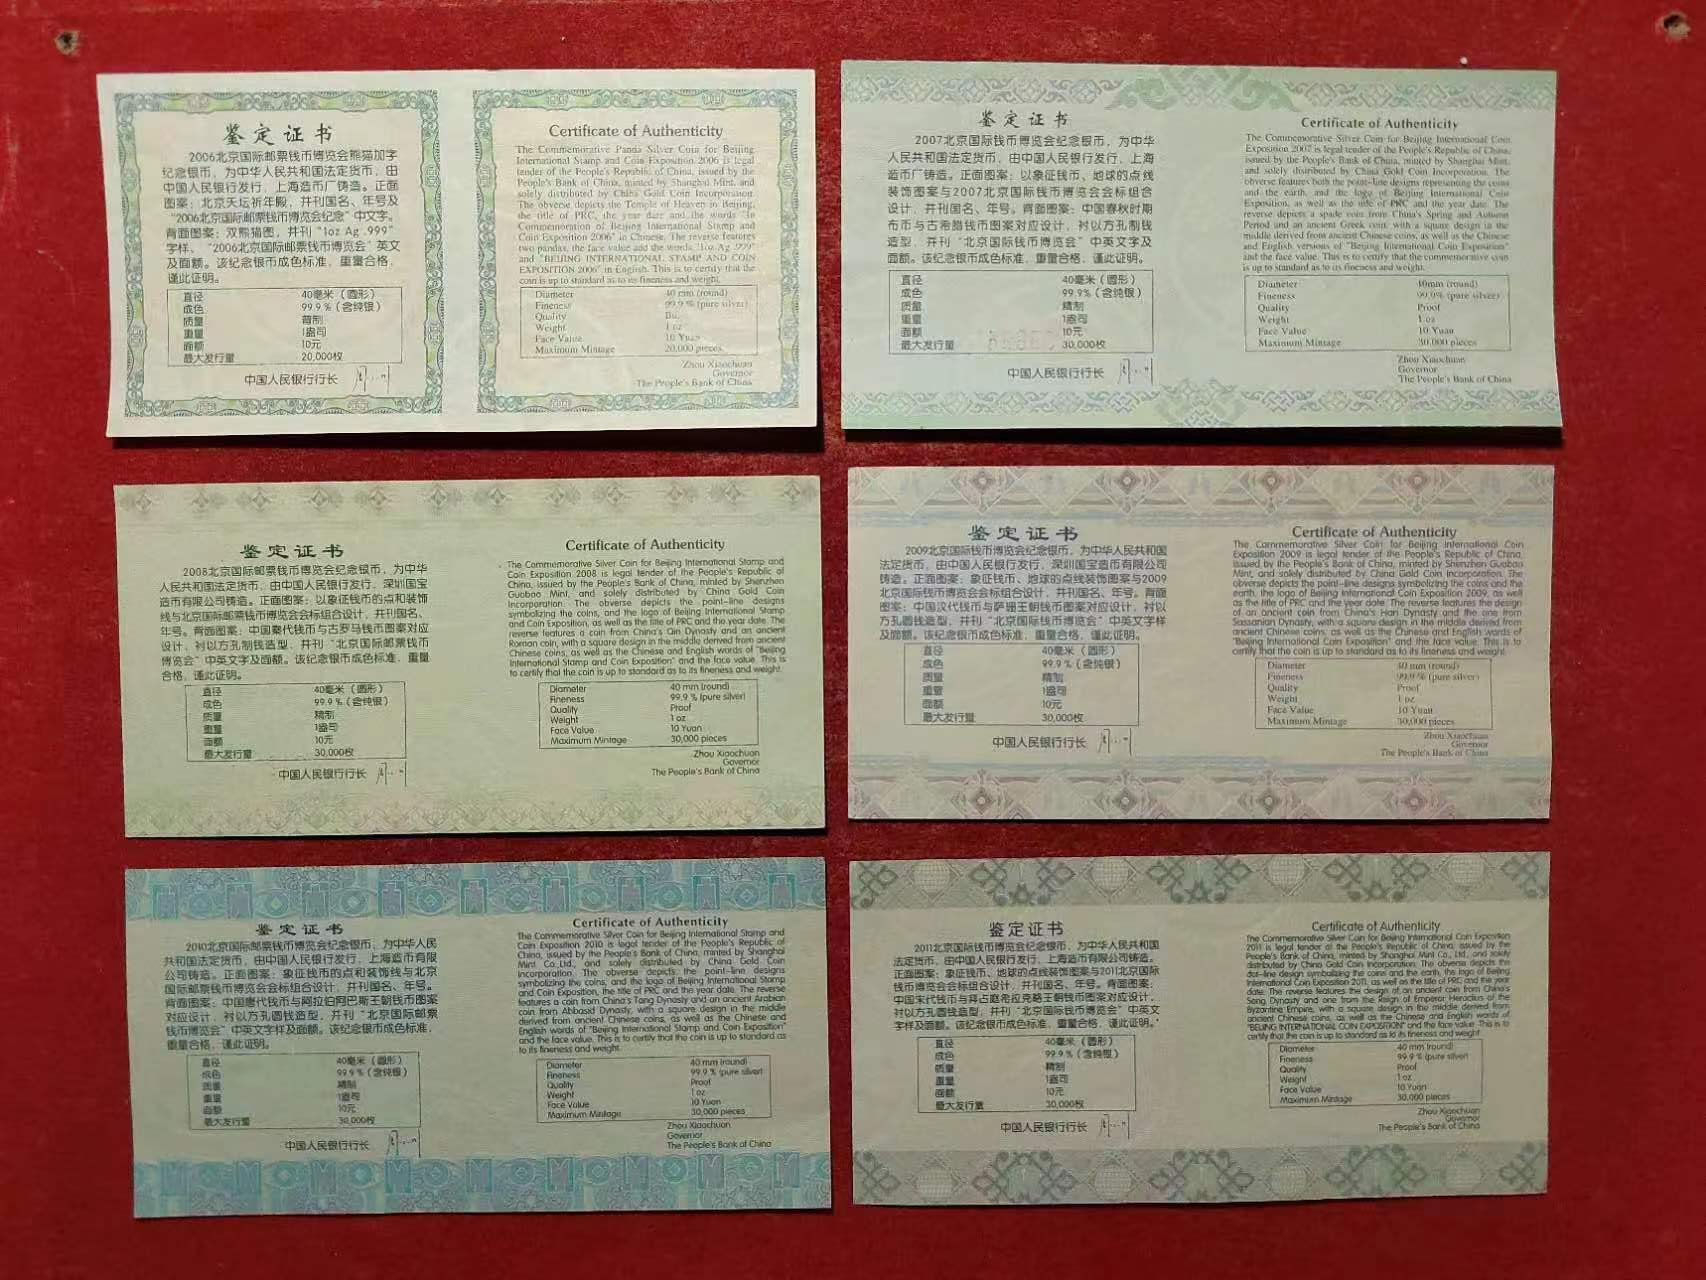 鉴定证书
2006北京国际邮票钱币博览会熊猫加字
纪念银币，为中华人民共和国法定货币，由
中国人民银行发行，上海造币厂铸造。正面
图案：北京天坛祈年殿，并刊国名、年号及
“2006北京国际邮票钱币博览会纪念”中文字。
背面图案：双熊猫图，并刊“1oz Ag .999”
字样、“2006北京国际邮票钱币博览会”英文
及面额。该纪念银币成色标准，重量合格，
谨此证明。
直径 40毫米（圆形）
成色 99.9%（含纯银）
质量 普制
重量 1盎司
面额 10元
最大发行量 20,000枚
中国人民银行行长
Certificate of Authenticity
The Commemorative Panda Silver Coin for Beijing
International Stamp and Coin Exposition 2006 is legal
tender of the People's Republic of China, issued by the
People's Bank of China, minted by Shanghai Mint, and
solely distributed by China Gold Coin Incorporation.
The obverse depicts the Temple of Heaven in Beijing,
the title of PRC, the year date and the words "In
Commemoration of Beijing International Stamp and
Coin Exposition 2006" in Chinese. The reverse features
two pandas, the face value and the words "1oz Ag .999"
and "BEIJING INTERNATIONAL STAMP AND COIN
EXPOSITION 2006" in English. This is to certify that the
coin is up to standard as to its fineness and weight.
Diameter 40 mm (round)
Fineness 99.9 % (pure silver)
Quality Bu.
Weight 1 oz
Face Value 10 Yuan
Maximum Mintage 20,000 pieces
Zhou Xiaochuan
Governor
The People's Bank of China
鉴定证书
2007北京国际钱币博览会纪念银币，为中华
人民共和国法定货币，由中国人民银行发行，上海
造币厂铸造。正面图案：以象征钱币、地球的点线
装饰图案与2007北京国际钱币博览会会标组合
设计，并刊国名、年号。背面图案：中国春秋时期
布币与古希腊钱币图案对应设计，衬以方孔制钱
造型，并刊“北京国际钱币博览会”中英文字及
面额。该纪念银币成色标准，重量合格，谨此证明。
直径 40毫米（圆形）
成色 99.9%（含纯银）
质量 精制
重量 1盎司
面额 10元
最大发行量 30,000枚
中国人民银行行长
Certificate of Authenticity
The Commemorative Silver Coin for Beijing International Coin
Exposition 2007 is legal tender of the People's Republic of China,
issued by the People's Bank of China, minted by Shanghai Mint,
and solely distributed by China Gold Coin Incorporation. The
obverse features both the point-line designs representing the coins
and the earth, and the logo of Beijing International Coin
Exposition, as well as the title of PRC and the year date. The
reverse depicts a spade coin from China's Spring and Autumn
Period and an ancient Greek coin, with a square design in the
middle derived from ancient Chinese coins, as well as the Chinese
and English versions of "Beijing International Coin Exposition"
and the face value. This is to certify that the commemorative coin
is up to standard as to its fineness and weight.
Diameter 40mm (round)
Fineness 99.9% (pure silver)
Quality Proof
Weight 1 oz
Face Value 10 Yuan
Maximum Mintage 30,000 pieces
Zhou Xiaochuan
Governor
The People's Bank of China
鉴定证书
2008北京国际邮票钱币博览会纪念银币，为中华
人民共和国法定货币，由中国人民银行发行，深圳国宝
造币有限公司铸造。正面图案：以象征钱币的点和装饰
线与北京国际邮票钱币博览会会标组合设计，并刊国名、
年号。背面图案：中国秦代钱币与古罗马钱币图案对应
设计，衬以方孔制钱造型，并刊“北京国际邮票钱币
博览会”中英文字及面额。该纪念银币成色标准，重量
合格，谨此证明。
直径 40毫米（圆形）
成色 99.9%（含纯银）
质量 精制
重量 1盎司
面额 10元
最大发行量 30,000枚
中国人民银行行长
Certificate of Authenticity
The Commemorative Silver Coin for Beijing International Stamp and
Coin Exposition 2008 is legal tender of the People's Republic of
China, issued by the People's Bank of China, minted by Shenzhen
Guobao Mint, and solely distributed by China Gold Coin
Incorporation. The obverse depicts the point-line designs
symbolizing the coins, and the logo of Beijing International Stamp
and Coin Exposition, as well as the title of PRC and the year date. The
reverse features a coin from China's Qin Dynasty and an ancient
Roman coin, with a square design in the middle derived from ancient
Chinese coins, as well as the Chinese and English words of "Beijing
International Stamp and Coin Exposition" and the face value. This is
to certify that the coin is up to standard as to its fineness and weight.
Diameter 40 mm (round)
Fineness 99.9 % (pure silver)
Quality Proof
Weight 1 oz
Face Value 10 Yuan
Maximum Mintage 30,000 pieces
Zhou Xiaochuan
Governor
The People's Bank of China
鉴定证书
2009北京国际钱币博览会纪念银币，为中华人民共和国
法定货币，由中国人民银行发行，深圳国宝造币有限公司
铸造。正面图案：象征钱币、地球的点线装饰图案与2009
北京国际钱币博览会会标组合设计，并刊国名、年号。背面
图案：中国汉代钱币与萨珊王朝钱币图案对应设计，衬以
方孔圆钱造型，并刊“北京国际钱币博览会”中英文字样
及面额。该纪念银币成色标准，重量合格，谨此证明。
直径 40毫米（圆形）
成色 99.9%（含纯银）
质量 精制
重量 1盎司
面额 10元
最大发行量 30,000枚
中国人民银行行长
Certificate of Authenticity
The Commemorative Silver Coin for Beijing International Coin
Exposition 2009 is legal tender of the People's Republic of China,
issued by the People's Bank of China, minted by Shenzhen Guobao
Mint, and solely distributed by China Gold Coin Incorporation. The
obverse depicts the point-line designs symbolizing the coins and the
earth, the logo of Beijing International Coin Exposition 2009, as well
as the title of PRC and the year date. The reverse features the design
of an ancient coin from China's Han Dynasty and the one from
Sassanian Dynasty, with a square design in the middle derived from
ancient Chinese coins, as well as the Chinese and English words of
"Beijing International Coin Exposition" and the face value. This is to
certify that the coin is up to standard as to its fineness and weight.
Diameter 40 mm (round)
Fineness 99.9 % (pure silver)
Quality Proof
Weight 1 oz
Face Value 10 Yuan
Maximum Mintage 30,000 pieces
Zhou Xiaochuan
Governor
The People's Bank of China
鉴定证书
2010北京国际邮票钱币博览会纪念银币，为中华人民
共和国法定货币，由中国人民银行发行，上海造币有限
公司铸造。正面图案：象征钱币的点和装饰线与北京
国际邮票钱币博览会会标组合设计，并刊国名、年号。
背面图案：中国唐代钱币与阿拉伯阿巴斯王朝钱币图案
对应设计，衬以方孔圆钱造型，并刊“北京国际邮票
钱币博览会”中英文字样及面额。该纪念银币成色标准，
重量合格，谨此证明。
直径 40毫米（圆形）
成色 99.9%（含纯银）
质量 精制
重量 1盎司
面额 10元
最大发行量 30,000枚
中国人民银行行长
Certificate of Authenticity
The Commemorative Silver Coin for Beijing International Stamp and
Coin Exposition 2010 is legal tender of the People's Republic of
China, issued by the People's Bank of China, minted by Shanghai
Mint Co.,Ltd., and solely distributed by China Gold Coin
Incorporation. The obverse depicts the point-line designs
symbolizing the coins, and the logo of Beijing International Stamp
and Coin Exposition, the title of PRC and the year date. The reverse
features a coin from China's Tang Dynasty and an ancient Arabian
coin from Abbasid Dynasty, with a square design in the middle
derived from ancient Chinese coins, as well as the Chinese and
English words of "Beijing International Stamp and Coin Exposition"
and the face value. This is to certify that the coin is up to standard as
to its fineness and weight.
Diameter 40 mm (round)
Fineness 99.9 % (pure silver)
Quality Proof
Weight 1 oz
Face Value 10 Yuan
Maximum Mintage 30,000 pieces
Zhou Xiaochuan
Governor
The People's Bank of China
鉴定证书
2011北京国际钱币博览会纪念银币，为中华人民共和国
法定货币，由中国人民银行发行，上海造币有限公司铸造。
正面图案：象征钱币、地球的点线装饰图案与2011北京国际
钱币博览会会标组合设计，并刊国名、年号。背面图案：
中国宋代钱币与拜占庭希拉克略王朝钱币图案对应设计，
衬以方孔圆钱造型，并刊“北京国际钱币博览会”中英文
字样及面额。该纪念银币成色标准，重量合格，谨此证明。
直径 40毫米（圆形）
成色 99.9%（含纯银）
质量 精制
重量 1盎司
面额 10元
最大发行量 30,000枚
中国人民银行行长
Certificate of Authenticity
The Commemorative Silver Coin for Beijing International Coin Exposition
2011 is legal tender of the People's Republic of China, issued by the
People's Bank of China, minted by Shanghai Mint Co., Ltd., and solely
distributed by China Gold Coin Incorporation. The obverse depicts the
dot-line design symbolizing the coins and the earth, the logo of Beijing
International Coin Exposition 2011, as well as the title of PRC and the year
date. The reverse features the design of an ancient coin from China's
Song Dynasty and one from the Reign of Emperor Heraclius of the
Byzantine Empire, with a square design in the middle derived from
ancient Chinese coins, as well as the Chinese and English words of
"BEIJING INTERNATIONAL COIN EXPOSITION" and the face value. This is to
certify that the coin is up to standard as to its fineness and weight.
Diameter 40 mm (round)
Fineness 99.9 % (pure silver)
Quality Proof
Weight 1 oz
Face Value 10 Yuan
Maximum Mintage 30,000 pieces
Zhou Xiaochuan
Governor
The People's Bank of China